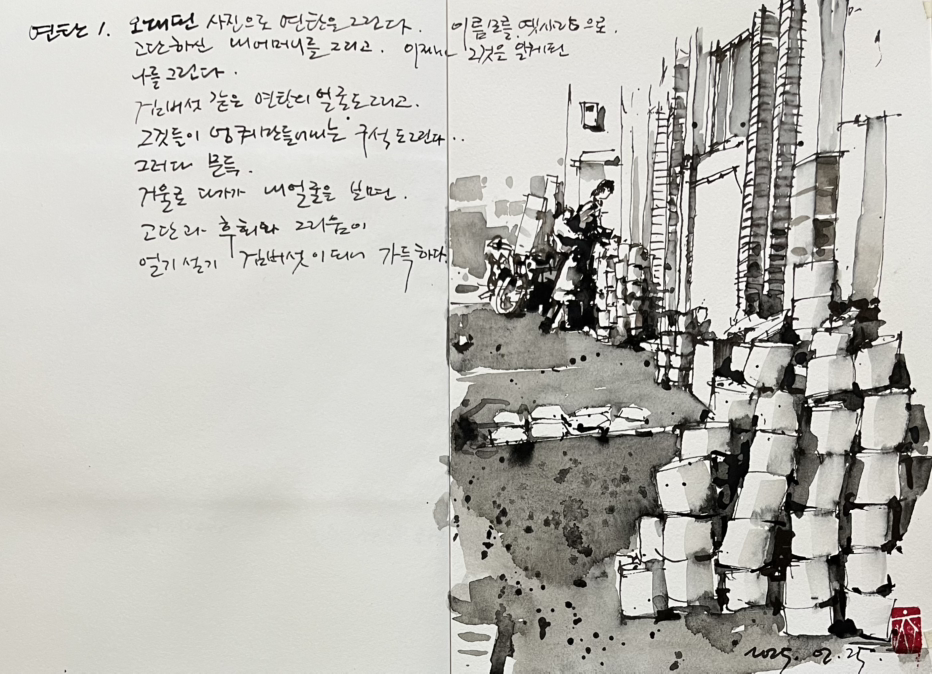 연탄 1. 오래된 사진으로 연탄을 그린다. 이름모를 옛사람으로.
고단하신 내어머니를 그리고. 이제는 그것은 알게된
나를 그린다.
검버섯 같은 연탄의 얼굴도 그리고.
그것들이 엉켜만들어내는 구석도 그린다..
그러다 문득.
거울로 다가가 내얼굴을 보면.
고단과 후회와 그리움이
얼기설기 검버섯이 되어 가득하다
2025. 02. 25.